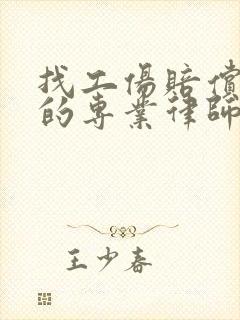 找工傷賠償
的專業律師
王少春